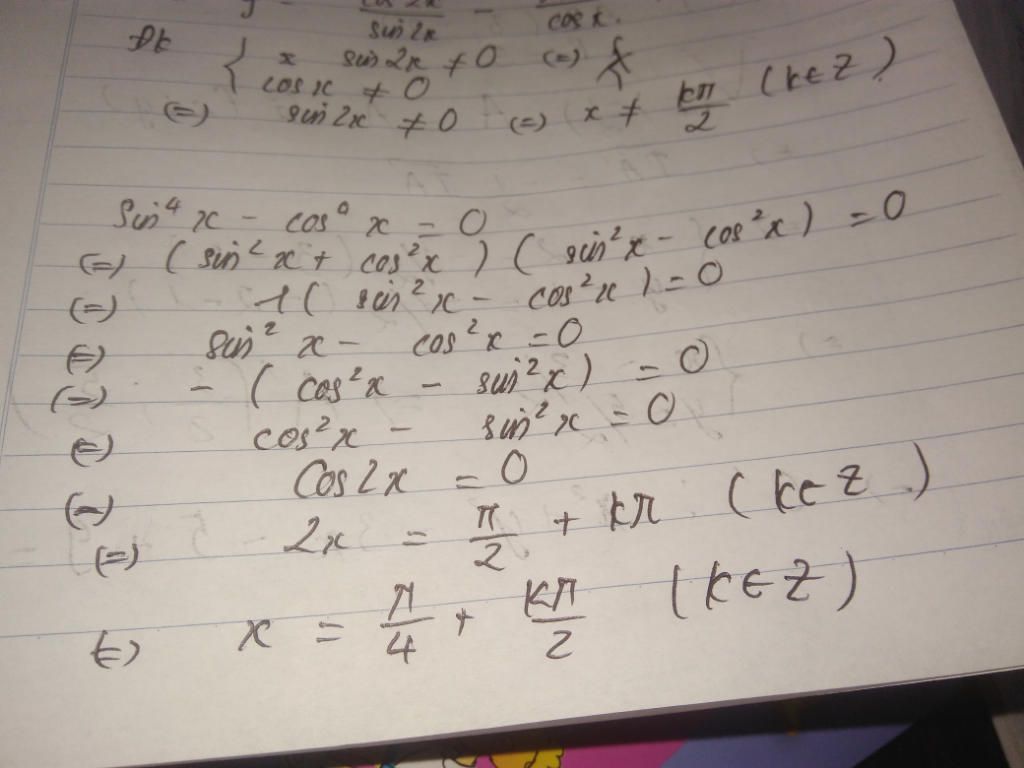 y = cos 2x / sin 2x - / cos x.
Đk { x sin2x ≠ 0 (=) {
cos x ≠ 0
(=) sin 2x ≠ 0 (=) x ≠ kπ/2 (k ∈ Z)
Sin⁴ x - cos⁴ x = 0
(=) (sin² x + cos² x) (sin² x - cos² x) = 0
(=) 1 (sin² x - cos² x) = 0
(=) sin² x - cos² x = 0
(=) - (cos² x - sin² x) = 0
(=) cos² x - sin² x = 0
(=) Cos 2x = 0
(=) 2x = π/2 + kπ (k ∈ Z)
(=) x = π/4 + kπ/2 (k ∈ Z)